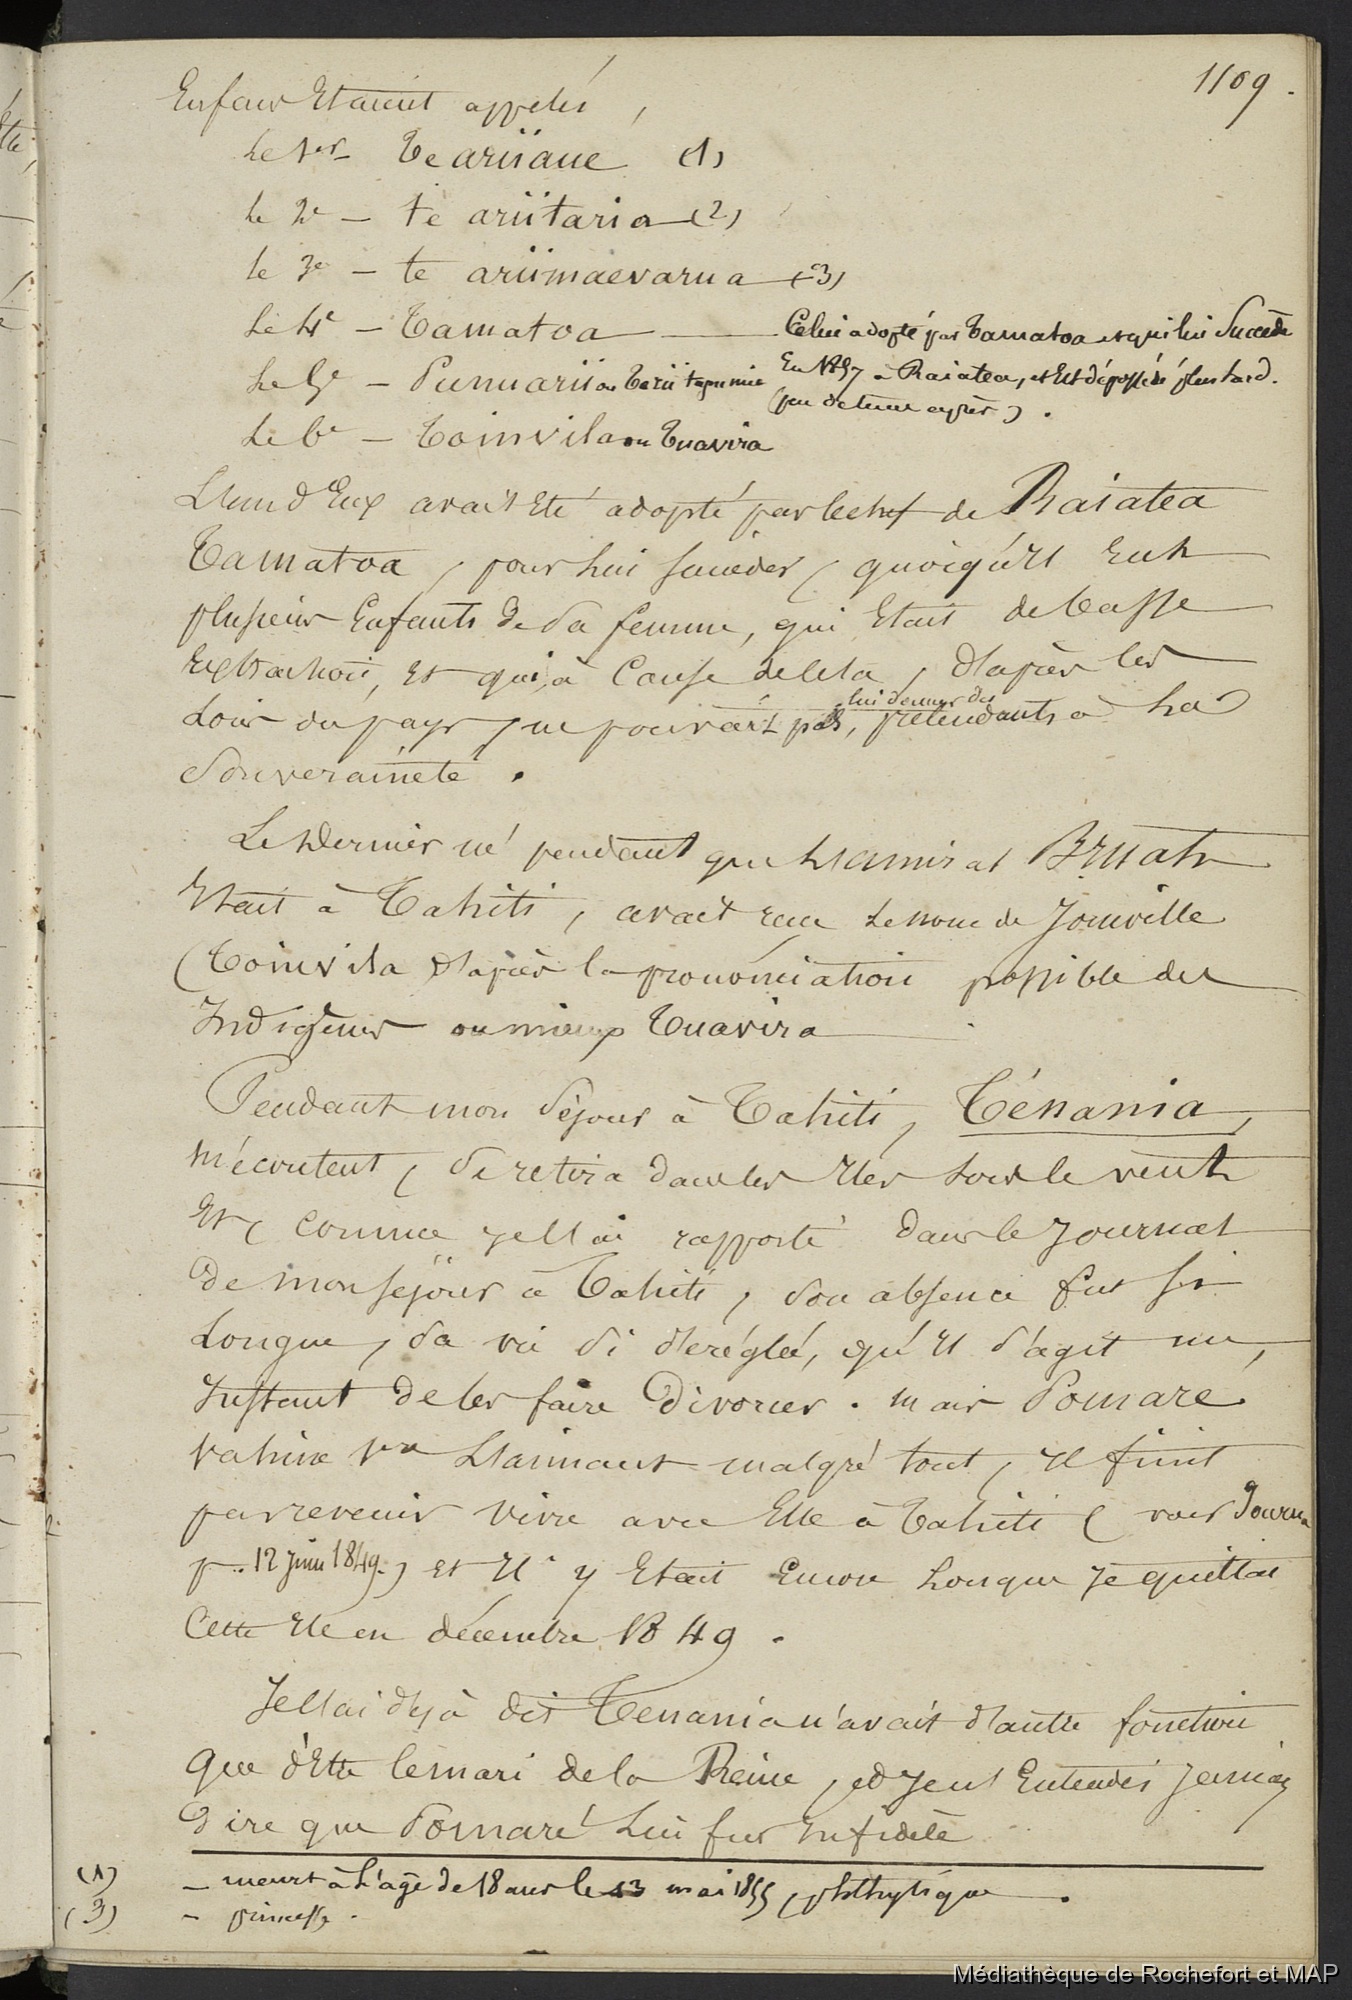 1109.
Enfans Etaient appelés,
Le 1er – Te ariiaue (1)
le 2e – te ariitaria (2)
le 3e – te ariimaevarua (3)
Le 4e – Tamatoa — Celui adopté par Tamatoa et qui lui Succède
En 1857 à Raiatea, et Est dépossédé plus tard.
(peu de temps après).
Le 5e – Punuarii ou Terii tapunui
Le 6e – Toinvila ou Tuavira
L'un d'Eux avait Eté adopté par le chef de Raiatea
Tamatoa, pour lui succéder, quoiqu'il Eut
plusieurs Enfants de Sa femme, qui Etait de basse
Extraction, Et qui, à Cause de cela, d'après les
Lois du pays, ne pouvait pas, lui donner des prétendants à La
Souveraineté.
Le Dernier né pendant que L'amiral Bruat
Etait à Tahiti, avait reçu Le nom de Joinville
(Toinvila d'après la prononciation possible des
Indigènes ou mieux Tuavira
Pendant mon Séjour à Tahiti, Ténania,
mécontent, Se retira dans les Iles Sous le vent
Et, comme je l'ai rapporté dans le Journal
De mon séjour à Tahiti, Son absence fut Si
Longue, Sa vie Si déréglée, qu'il S'agit un,
Instant de les faire Divorcer. mais Pomare
vahine 1re L'aimant malgré tout, Il finit
par revenir vivre avec Elle à Tahiti (voir Journa
p.. 12 Juin 1849.) et Il y Etait Encore Lorsque Je quittai
Cette Ile en décembre 1849.
Je l'ai déjà dit Tenania n'avait d'autre fonction
que d'Etre le mari de la Reine, et Je n'Entendis Jamais
Dire que Pomaré Lui fut Infidèle
(1) – meurt à L'âge de 18 ans le 13 mai 1855, phthysique.
(3) – princesse.
Médiathèque de Rochefort et MAP